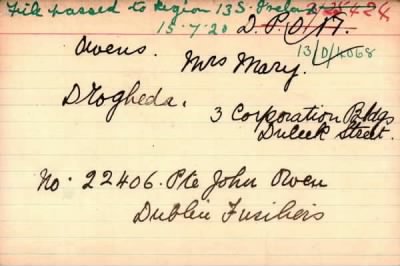 File passed to Region 13 S. Ireland
15.7.20 D.P.O.17.
13/D/4068
Owens. Mrs Mary.
Drogheda.
3 Corporation Bldgs
Duleek Street.
No. 22406. Pte John Owen
Dublin Fusiliers